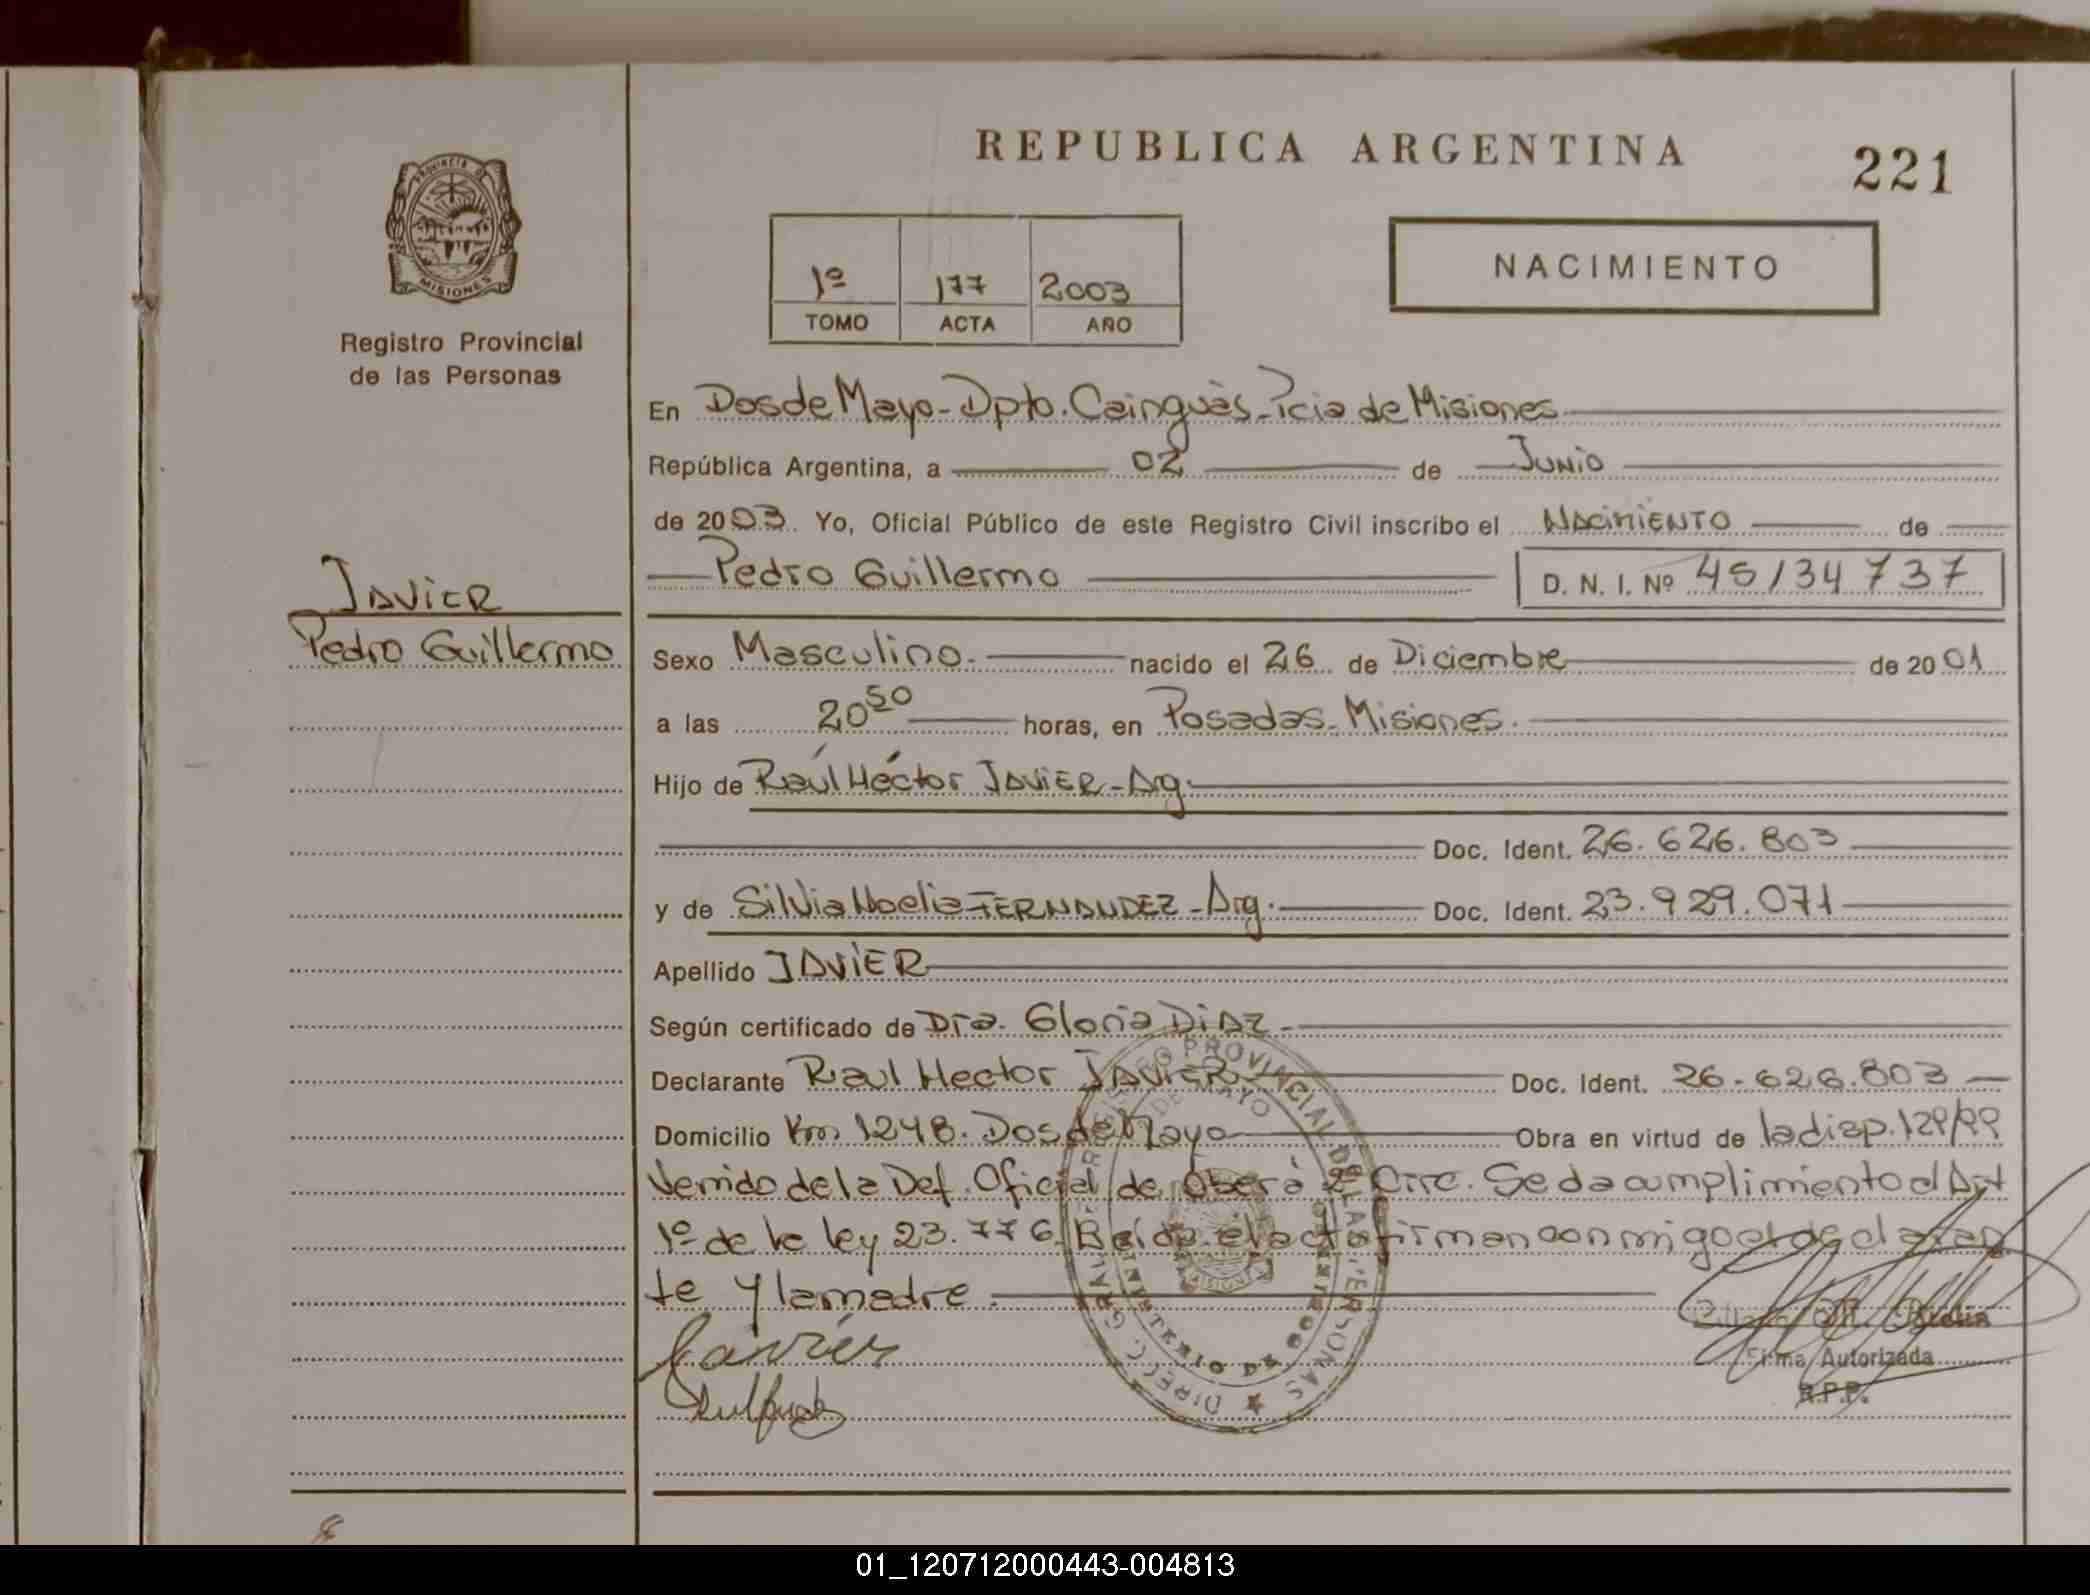 REPUBLICA ARGENTINA
221
PROVINCIA DE
MISIONES
Registro Provincial
de las Personas
1º 177 2003
TOMO ACTA AÑO
NACIMIENTO
En Dos de Mayo - Dpto. Cainguàs - Pcia de Misiones
República Argentina, a 02 de Junio
de 2003. Yo, Oficial Público de este Registro Civil inscribo el NACIMIENTO de
Pedro Guillermo D. N. I. Nº 45134737
JAVIER
Pedro Guillermo
Sexo Masculino. nacido el 26 de Diciembre de 2001
a las 20 50 horas, en Posadas - Misiones.
Hijo de Raúl Héctor JAVIER - Arg.
Doc. Ident. 26.626.803
y de Silvia Noelia FERNANDEZ - Arg. Doc. Ident. 23.929.071
Apellido JAVIER
Según certificado de Dra. Gloria DIAZ -
Declarante Raul Hector JAVIER - Doc. Ident. 26.626.803
Domicilio Km 1248. Dos de Mayo Obra en virtud de la disp. 129/99
Venido de la Def. Oficial de Oberá 2º Circ. Se da cumplimiento al Art
1º de la ley 23.776. Leída el acta firman conmigo el declaran
te y la madre.
Javier
Firma Autorizada
R.P.P.
DIRECC. GRAL. REGISTRO PROVINCIAL DE LAS PERSONAS
DOS DE MAYO
01_120712000443-004813